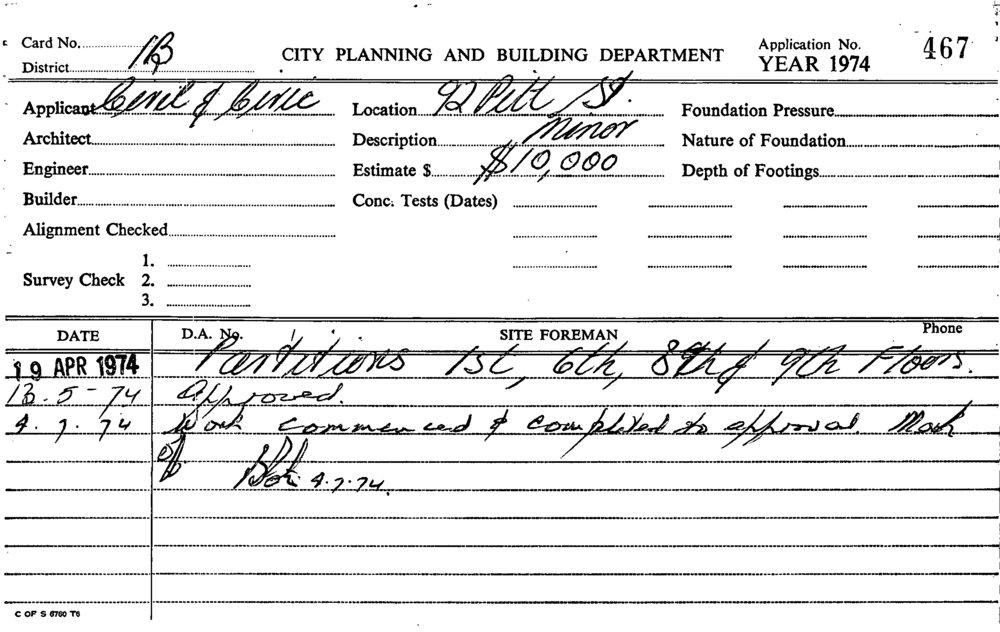 Card No.
District 1B
CITY PLANNING AND BUILDING DEPARTMENT
Application No. 467
YEAR 1974
Applicant Civil & Civic
Location 92 Pitt St.
Foundation Pressure
Architect
Description Minor
Nature of Foundation
Engineer
Estimate $ $10,000
Depth of Footings
Builder
Conc. Tests (Dates)
Alignment Checked
Survey Check 1.
2.
3.
DATE D.A. No. SITE FOREMAN Phone
19 APR 1974 Partitions 1st, 6th, 8th & 9th Floors.
13.5-74 Approved.
4.7.74 Work commenced & completed to approval. Mark
off
4.7.74.
C OF S 6760 T6